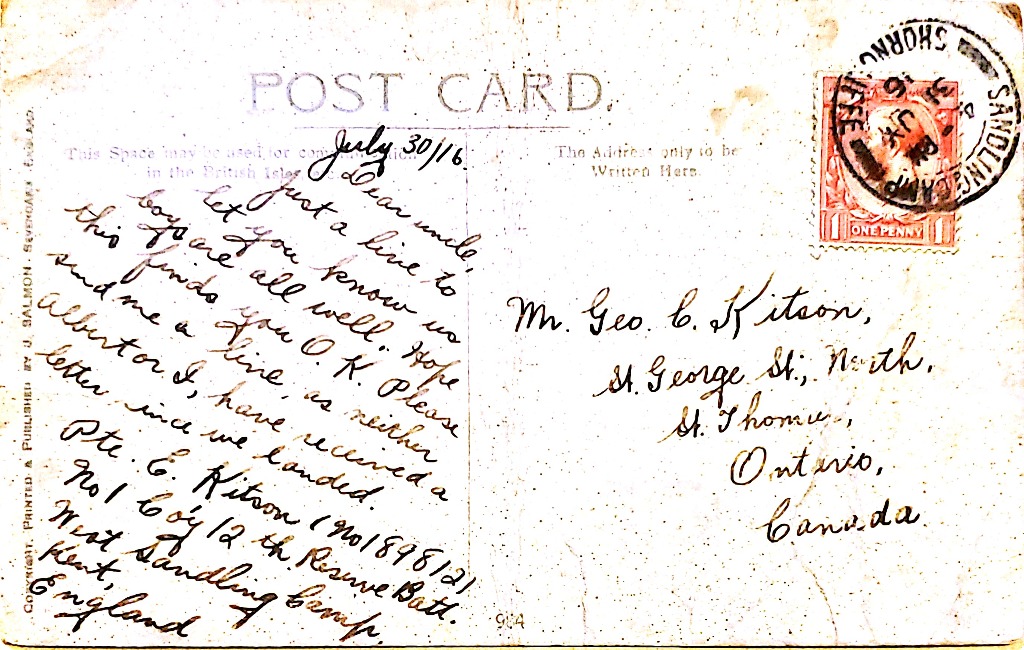 POST CARD.
This Space may be used for communication
in the British Isles
The Address only to be
Written Here.
July 30/16
Dear uncle,
Just a line to
let you know us
boys are all well. Hope
this finds you O. K. Please
send me a line, as neither
Albert or I, have received a
letter since we landed.
Pte. E. Kitson (No 189812)
No 1 Coy 12 th. Reserve Batt.
West Sandling Camp.
Kent,
England
Mr. Geo. C. Kitson,
St. George St., North,
St. Thomas,
Ontario,
Canada
SANDLING CAMP
SHORNCLIFFE
31 JY
16
1 ONE PENNY 1
COPYRIGHT, PRINTED & PUBLISHED BY J. SALMON SEVENOAKS ENGLAND